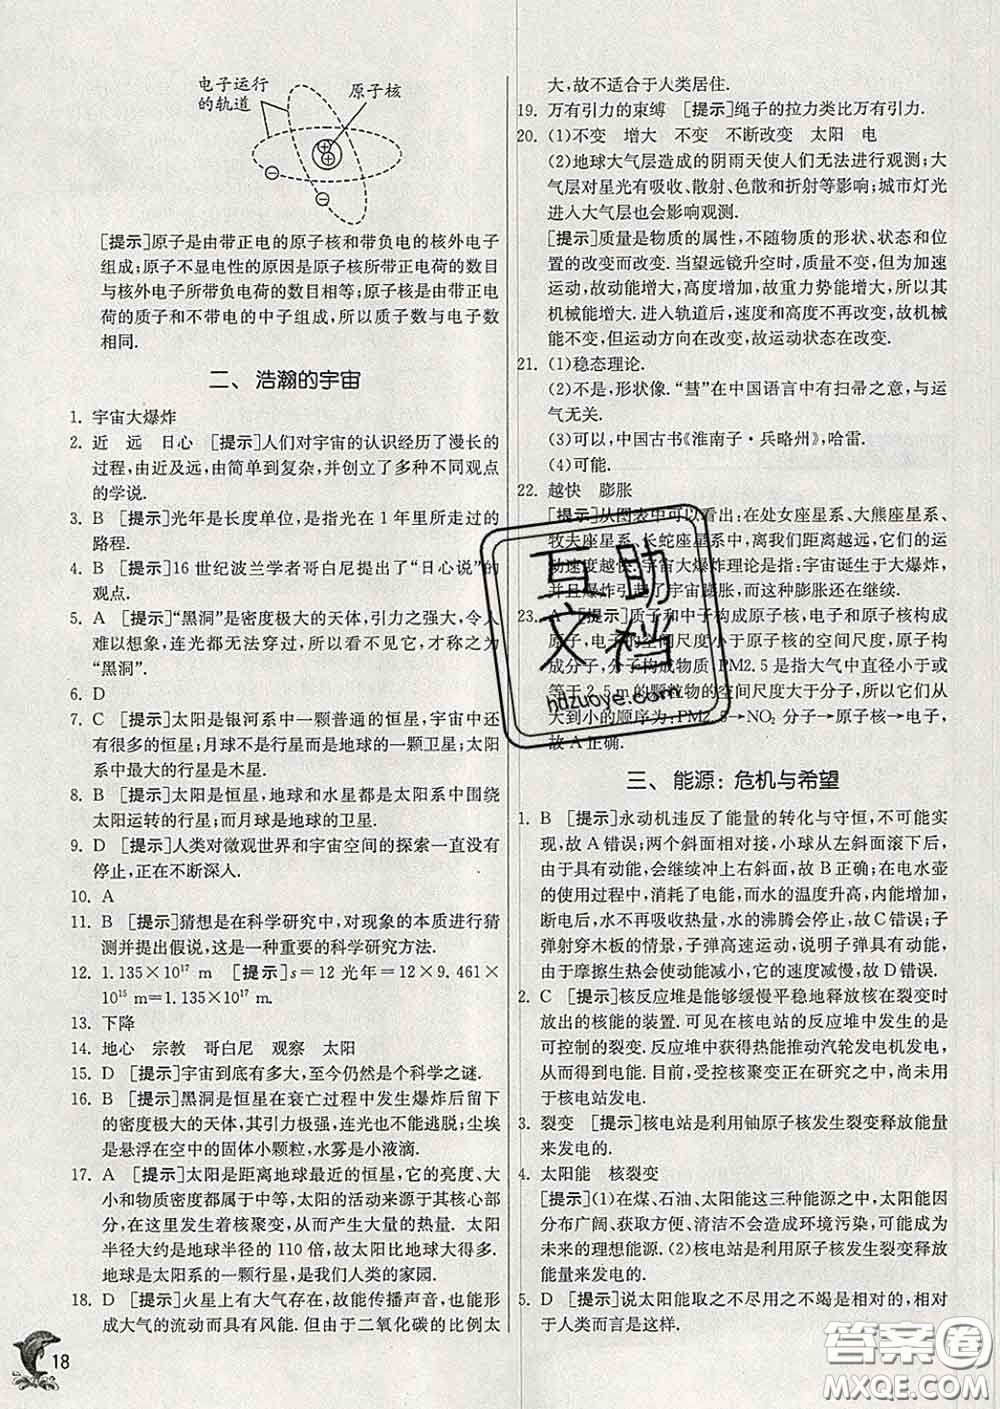 电子运行
的轨道
原子核
[提示]原子是由带正电的原子核和带负电的核外电子
组成;原子不显电性的原因是原子核所带正电荷的数目
与核外电子所带负电荷的数目相等;原子核是由带正电
荷的质子和不带电的中子组成,所以质子数与电子数
相同.
二、浩瀚的宇宙
1. 宇宙大爆炸
2. 近 远 日心 [提示]人们对宇宙的认识经历了漫长的
过程,由近及远,由简单到复杂,并创立了多种不同观点
的学说.
3. B [提示]光年是长度单位,是指光在 1 年里所走过的
路程.
4. B [提示]16 世纪波兰学者哥白尼提出了“日心说”的
观点.
5. A [提示]“黑洞”是密度极大的天体,引力之强大,令人
难以想象,连光都无法穿过,所以看不见它,才称之为
“黑洞”.
6. D
7. C [提示]太阳是银河系中一颗普通的恒星,宇宙中还
有很多的恒星;月球不是行星而是地球的一颗卫星;太阳
系中最大的行星是木星.
8. B [提示]太阳是恒星,地球和水星是太阳系中围绕
太阳运转的行星;而月球是地球的卫星.
9. D [提示]人类对微观世界和宇宙空间的探索一直没有
停止,正在不断深人.
10. A
11. B [提示]猜想是在科学研究中,对现象的本质进行猜
测并提出假说,这是一种重要的科学研究方法.
12. 1.135×10¹⁷ m [提示]s=12 光年=12×9.461×
10¹⁵ m=1.135×10¹⁷ m.
13. 下降
14. 地心 宗教 哥白尼 观察 太阳
15. D [提示]宇宙到底有多大,至今仍然是个科学之谜.
16. B [提示]黑洞是恒星在衰亡过程中发生爆炸后留下
的密度极大的天体,其引力极强,连光也不能逃脱;尘埃
是悬浮在空中的固体小颗粒,水雾是小液滴.
17. A [提示]太阳是距离地球最近的恒星,它的亮度、大
小和物质密度都属于中等,太阳的活动来源于其核心部
分,在这里发生着核聚变,从而产生大量的热量. 太阳
半径大约是地球半径的 110 倍,故太阳比地球大得多.
地球是太阳系的一颗行星,是我们人类的家园.
18. D [提示]火星上有大气存在,故能传播声音,也能形
成大气的流动而具有风能. 但由于二氧化碳的比例太
18
大,故不适合于人类居住.
19. 万有引力的束缚 [提示]绳子的拉力类比万有引力.
20. (1)不变 增大 不变 不断改变 太阳 电
(2)地球大气层造成的阴雨天使人们无法进行观测;大
气层对星光有吸收、散射、色散和折射等影响;城市灯光
进入大气层也会影响观测.
[提示]质量是物质的属性,不随物质的形状、状态和位置
的改变而改变. 当望远镜升空时,质量不变,但因为加速
运动,故动能增大,高度增加,故重力势能增大,所以其
机械能增大. 进入轨道后,速度和高度不再改变,故机械
能不变,但运动方向在改变,故运动状态在改变.
21. (1)稳态理论.
(2)不是,形状像. “彗”在中国语言中有扫帚之意,与运
气无关.
(3)可以,中国古书《淮南子·兵略州》,哈雷.
(4)可能.
22. 越快 膨胀
[提示]从图表中可以看出:在处女座星系、大熊座星系、
牧夫座星系、长蛇座星系中,离我们距离越远,它们的运
动速度越快.宇宙大爆炸理论是指:宇宙诞生于大爆炸,
并且爆炸引起了宇宙膨胀,而这种膨胀还在继续.
23. A [提示]质子和中子构成原子核,电子和原子核构成
原子,电子的空间尺度小于原子核的空间尺度,原子构
成分子,分子构成物质.PM2.5是指大气中直径小于或
等于2.5 m的颗粒物的空间尺度大于分子,所以它们从
大到小的顺序为:PM2.5→NO₂ 分子→原子核→电子,
故 A 正确.
三、能源：危机与希望
1. B [提示]永动机违反了能量的转化与守恒,不可能实
现,故 A 错误;两个斜面相对接,小球从左斜面滚下后,
由于具有动能,会继续冲上右斜面,故 B 正确;在电水壶
的使用过程中,消耗了电能,而水的温度升高,内能增加,
断电后,水不再吸收热量,水的沸腾会停止,故 C 错误;子
弹射穿木板的情景,子弹高速运动,说明子弹具有动能,
由于摩擦生热会使动能减小,它的速度减慢,故 D 错误.
2. C [提示]核反应堆是能够缓慢平稳地释放核在裂变时
放出的核能的装置. 可见在核电站的反应堆中发生的是
可控制的裂变. 反应堆中获得热能推动汽轮发电机发电,
从而得到电能. 目前,受控核聚变正在研究之中,尚未用
于核电站发电.
3. 裂变 [提示]核电站是利用铀原子核发生裂变释放能量
来发电的.
4. 太阳能 核裂变
[提示](1)在煤、石油、太阳能这三种能源之中,太阳能因
分布广阔、获取方便、清洁不会造成环境污染,可能成为
未来的理想能源. (2)核电站是利用原子核发生裂变释放
能量来发电的.
5. D [提示]说太阳能取之不尽用之不竭是相对的,相对
于人类而言是这样.
互助
文档
hdzuoye.com
答案圈
MXQE.COM